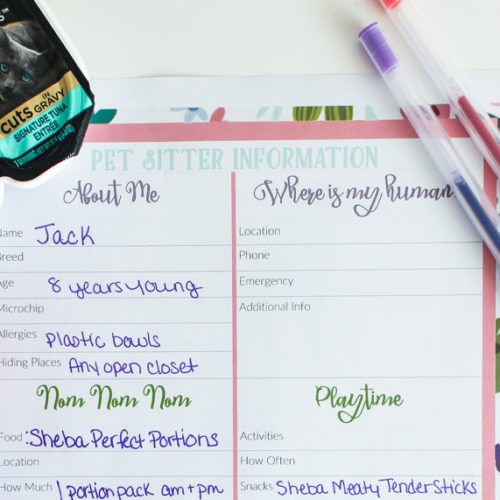 cuts IN GRAVY
SIGNATURE TUNA
ENTRÉE
PET SITTER INFORMATION
About Me
Name Jack
Breed
Age 8 years young
Microchip
Allergies Plastic bowls
Hiding Places Any open closet
Nom Nom Nom
Food :Sheba Perfect Portions
Location
How Much 1 portion pack am + pm
Where is my human?
Location
Phone
Emergency
Additional Info
Playtime
Activities
How Often
Snacks Sheba Meaty Tender Sticks